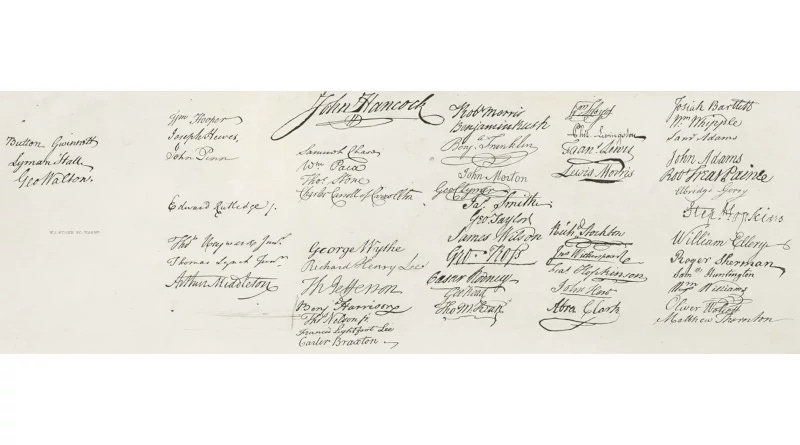 Button Gwinnett
Lyman Hall
Geo Walton.
Wm Hooper
Joseph Hewes,
John Penn
Edward Rutledge /.
Thos Heyward Junr.
Thomas Lynch Junr.
Arthur Middleton
John Hancock
Samuel Chase
Wm Paca
Thos Stone
Charles Carroll of Carrollton
George Wythe
Richard Henry Lee
Th Jefferson
Benj Harrison
Thos Nelson jr.
Francis Lightfoot Lee
Carter Braxton
Robt Morris
Benjamin Rush
Benj Franklin
John Morton
Geo Clymer
Jas Smith
Geo Taylor
James Wilson
Geo Ross
Caesar Rodney
Geo Read
Tho M:Kean
Wm Floyd
Phil. Livingston
Frans. Lewis
Lewis Morris
Richd Stockton
Jno Witherspoon
Fras Hopkinson
John Hart
Abra Clark
Josiah Bartlett
Wm Whipple
Saml Adams
John Adams
Robt Treat Paine
Elbridge Gerry
Step Hopkins
William Ellery
Roger Sherman
Saml Huntington
Wm Williams
Oliver Wolcott
Matthew Thornton